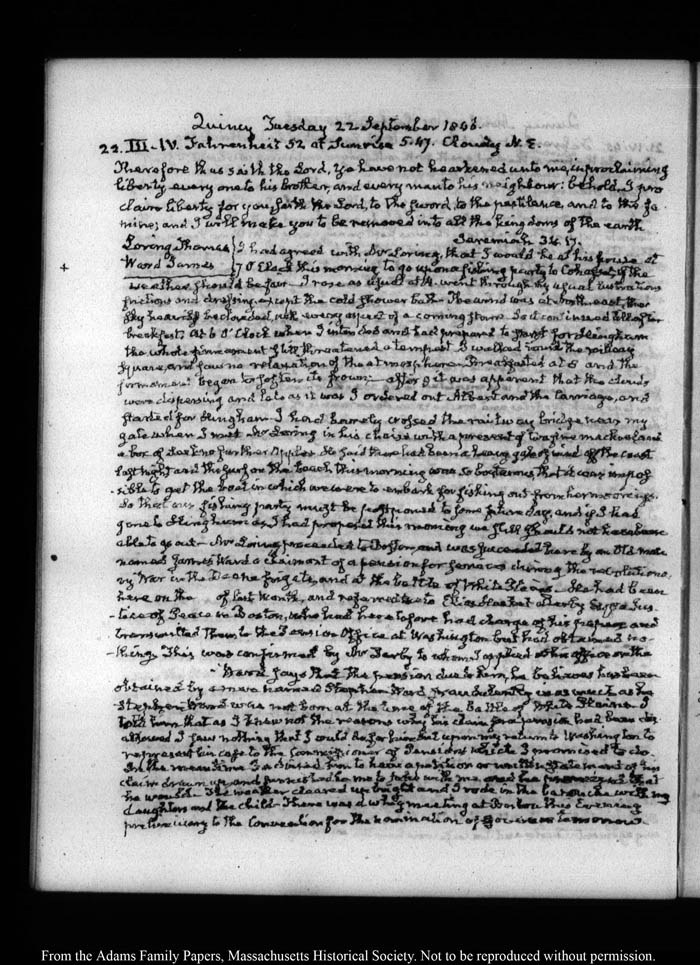 Quincy Tuesday 22 September 1846.
22. III-IV. Fahrenheit 52 at Sunrise 5.47. Cloudy N. E.
Therefore thus saith the Lord, Ye have not hearkened unto me, in proclaiming
liberty every one to his brother, and every man to his neighbour: behold, I pro
claim liberty for you, saith the Lord, to the sword, to the pestilence, and to the fa
mine; and I will make you to be removed into all the kingdoms of the earth.
Jeremiah 34. 17.
Loring Thomas
Ward James
I had agreed with Mr Loring, that I would be at his house at
7 O'Clock this morning to go upon a fishing party to Cohasset, if the
weather should be fair. I rose as usual at 4. went through my usual
frictions and dressing, except the cold shower bath. The wind was at Northeast, the
sky heavily beclouded, with every aspect of a coming storm. So it continued till after
breakfast. At 6 O'Clock when I intended and had prepared to start for Hingham
the whole firmament still threatened a tempest. I walked round the
Square, and saw no relaxation of the atmosphere. Breakfasted at 8 and the
firmament began to soften its frown. after 9 it was apparent that the clouds
were dispersing and late as it was I ordered out Albert and the carriage, and
started for Hingham. I had barely crossed the railway bridge near my
gate when I met Mr Loring in his chaise with a present of mackerel and
a box of further Apples. He said there had been a heavy gale of wind off the coast
last night and the surf on the beach this morning was so boisterous that it was impos
-sible to get the boat in which we were to embark for fishing out from her moorings.
So that our fishing party must be postponed to some future day, and if I had
gone to Hingham as I had proposed this morning we still should not have been
able to go out. Mr Loring proceeded to Boston, and was succeeded here by an Old man
named James Ward a claimant of a pension for services during the revolutiona-
ry War in the frigate, and at the battle of White Plains. He had been
here on the of last Month, and referred me to Elias Hasket Derby Esqre a Jus
-tice of Peace in Boston, who had heretofore had charge of his papers and
transmitted them to the Pension Office at Washington but had obtained no-
thing. This was confirmed by Mr Derby to whom I applied at his office on the
Ward says that the pension due to him, he believes has been
obtained by a man named Stephen Ward fraudulently in as much as he
Stephen Ward was not born at the time of the battle of White Plains. I
told him that as I knew not the reasons why his claim for a pension had been dis
allowed I saw nothing that I could do for him but upon my return to Washington to
represent his case to the Commissioner of Pensions which I promised to do.
In the mean time I advised him to have a petition or written statement of his
claim drawn up and furnished to me to take with me, and he promised that
he would. The weather cleared up bright and I rode in the barouche with my
daughter and the child. There was a whig meeting at Boston this Evening
preliminary to the Convention for the nomination of Governor tomorrow.
From the Adams Family Papers, Massachusetts Historical Society. Not to be reproduced without permission.